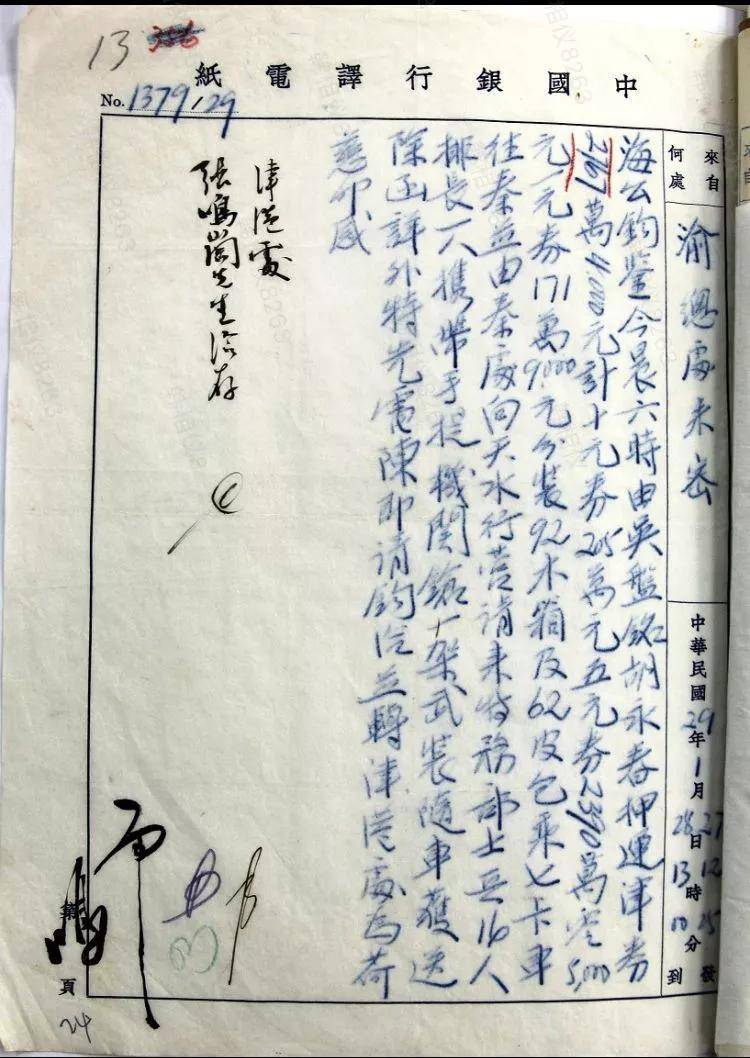 13
中國銀行譯電紙
No. 1379/29
來自何處
渝總處未密
中華民國29年1月
27日12時25分發
28日13時00分到
海公鈞鑒今晨六時由吳盤銘胡永春押運津券
2767萬4,000元計十元券205萬元五元券2390萬零5,000
元一元券171萬9,000元分裝92木箱及62皮包乘七卡車
往秦並由秦處向天水行營請來特務部士兵16人
排長一人攜帶手提機關鎗一架武裝隨車護送
除函詳外特先電陳即請鈞洽並轉津港處為荷
慈叩感
津港處
張鳴崗先生洽存
第 頁
24